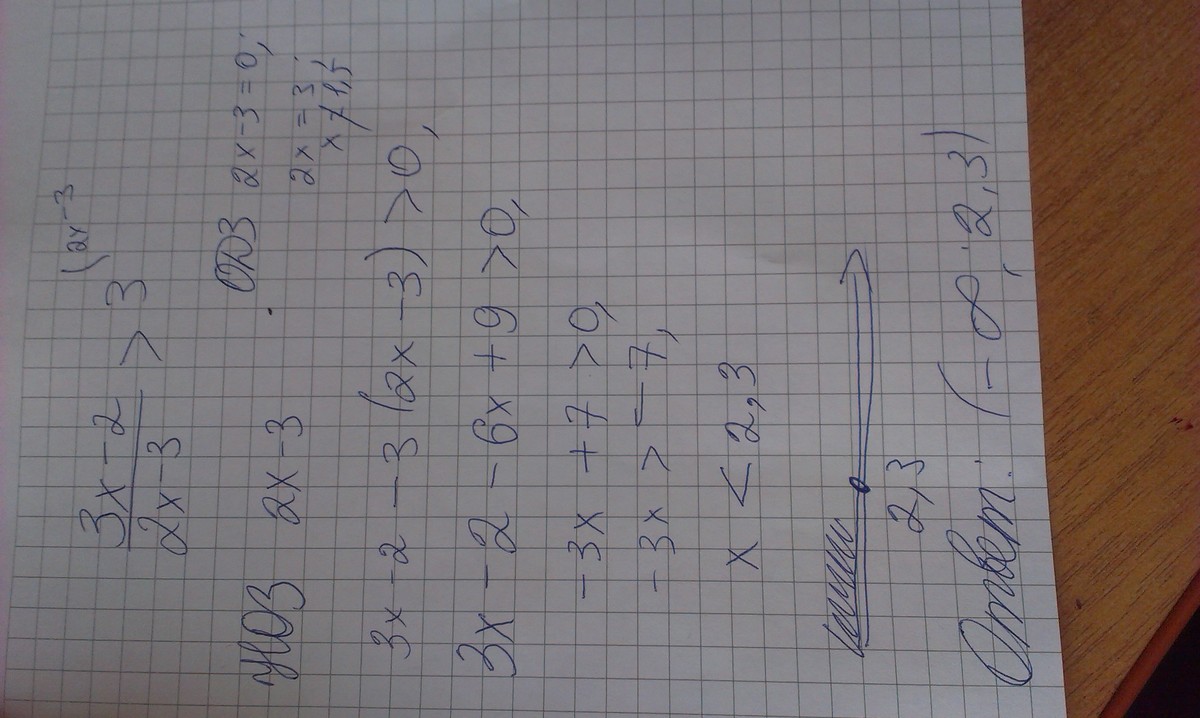 (2x-3
3x-2
2x-3
> 3
ОДЗ 2x-3=0;
2x=3;
x≠1,5
НОЗ 2x-3
3x-2-3(2x-3)>0,
3x-2-6x+9>0,
-3x+7>0,
-3x>-7,
x<2,3
2,3
Ответ: (-∞; 2,3)